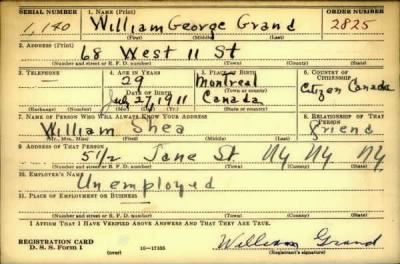 SERIAL NUMBER 1. NAME (Print) ORDER NUMBER
1,140 William George Grand 2825
(First) (Middle) (Last)
2. ADDRESS (Print)
68 West 11 St
(Number and street or R. F. D. number) (Town) (County) (State)
3. TELEPHONE 4. AGE IN YEARS 5. PLACE OF BIRTH 6. COUNTRY OF CITIZENSHIP
— 29 Montreal Citizen Canada
DATE OF BIRTH (Town or county)
July 27, 1911 Canada
(Exchange) (Number) (Mo.) (Day) (Yr.) (State or country)
7. NAME OF PERSON WHO WILL ALWAYS KNOW YOUR ADDRESS 8. RELATIONSHIP OF THAT PERSON
William Shea friend
(Mr., Mrs., Miss) (First) (Middle) (Last)
9. ADDRESS OF THAT PERSON
51/2 Jane St. Ny Ny Ny
(Number and street or R. F. D. number) (Town) (County) (State)
10. EMPLOYER'S NAME
Unemployed
11. PLACE OF EMPLOYMENT OR BUSINESS
(Number and street or R. F. D. number) (Town) (County) (State)
I AFFIRM THAT I HAVE VERIFIED ABOVE ANSWERS AND THAT THEY ARE TRUE.
REGISTRATION CARD
D. S. S. Form 1 (over) 16—17105 William Grand
(Registrant's signature)